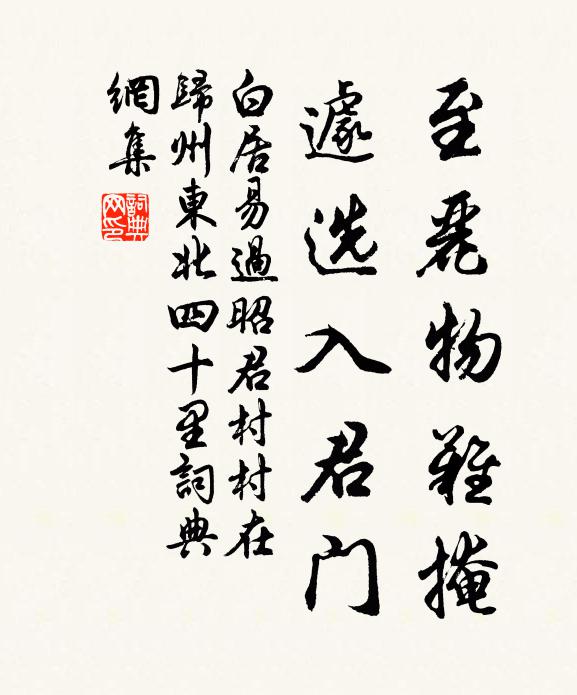 至麗物難掩
遽选入君门
白居易過昭君村村在
歸州東北四十里詞典
網集
詞典网印